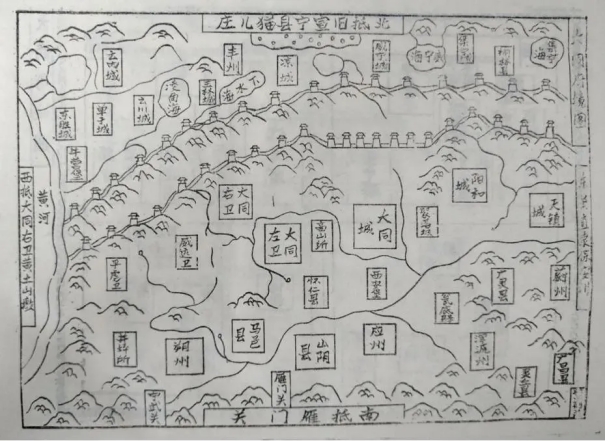 北抵旧宣宁县猫儿庄
丰州
凉城
威宁城
集宁
海子
榆林县
云内城
玉林城
下水海
东胜城
单于城
云川城
黄河
西抵大同右卫黄土山墩
大同右卫
大同左卫
高山所
大同城
阳和城
天镇城
聚落城
威远卫
平虏卫
怀仁县
西安堡
瓮城驿
广灵县
蔚州
井坪所
朔州
马邑县
山阴县
应州
浑源州
灵丘县
广昌县
宁武关
雁门关
南抵雁门关